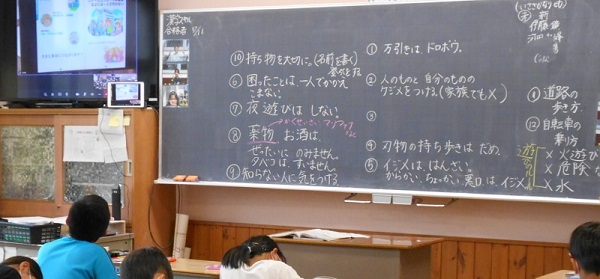 漢字けん
合格者
⑩ 持ち物を大切に。(名前を書く)
⑥ 困ったことは一人でかかえ
こまない。
⑦ 夜遊びはしない
かくせいざい マリファナ
⑧ 薬物 お酒は、
ぜったいに のみません。
タバコは、すいません。
⑨ 知らない人に気をつける。
① 万引きは、ドロボウ。
② 人のものと 自分のものの
ケジメをつける(家族でも×)
③
④ 刃物の持ち歩きはだめ。
⑤ イジメは、はんざい。
からかい、ちょっかい、悪口は、イジメ
⑪ 道路の
歩き方
⑫ 自転車の
乗り方
× 火遊び
× 危険な
× 水